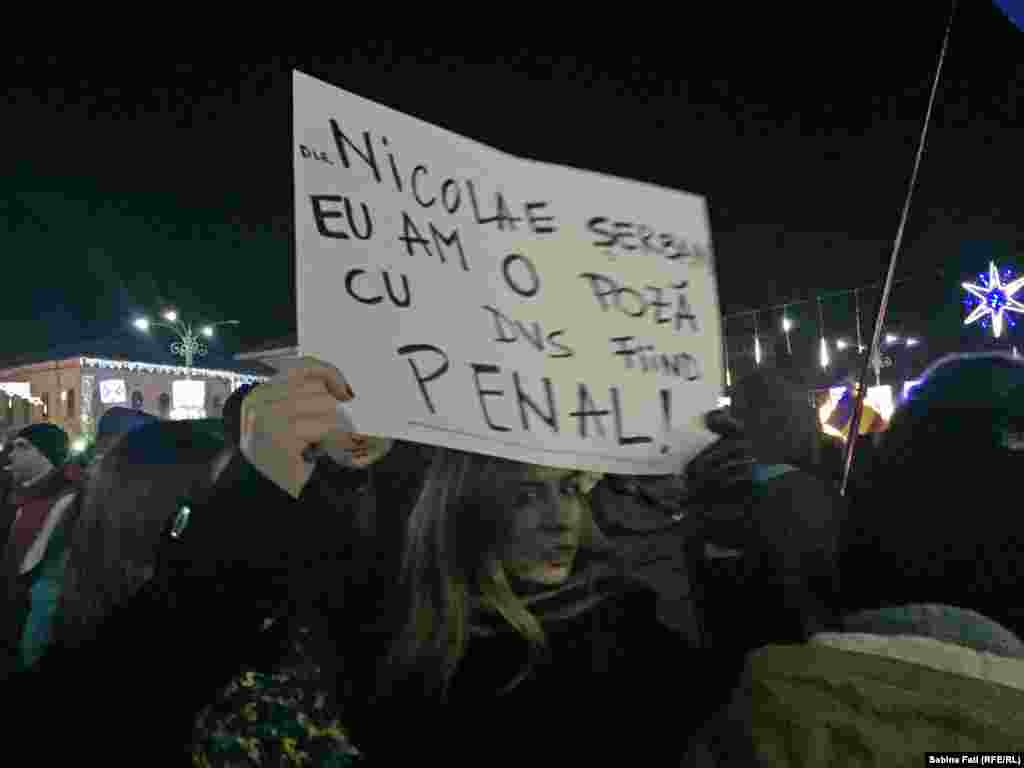 DLE NICOLAE ȘERBAN
EU AM O POZĂ
CU DVS FIIND
PENAL!
Sabina Fati (RFE/RL)